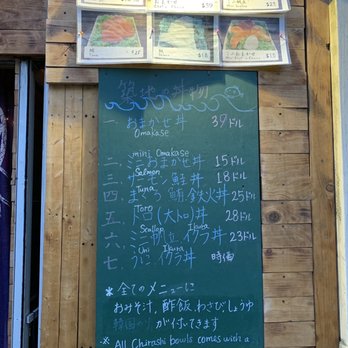 築地の丼物
一、おまかせ丼 39ドル
Omakase
mini Omakase
二、ミニおまかせ丼 15ドル
Salmon
三、サーモン鮭丼 18ドル
Tuna
四、まぐろ 鮪鉄火丼 25ドル
Toro
五、トロ(大トロ)丼 28ドル
Scallop Ikura
六、ミニ帆立イクラ丼 23ドル
Uni Ikura
七、うにイクラ丼 時価
*全てのメニューに
おみそ汁、酢飯、わさび、しょうゆ
が付いてきます
※ All Chirashi bowls comes with a